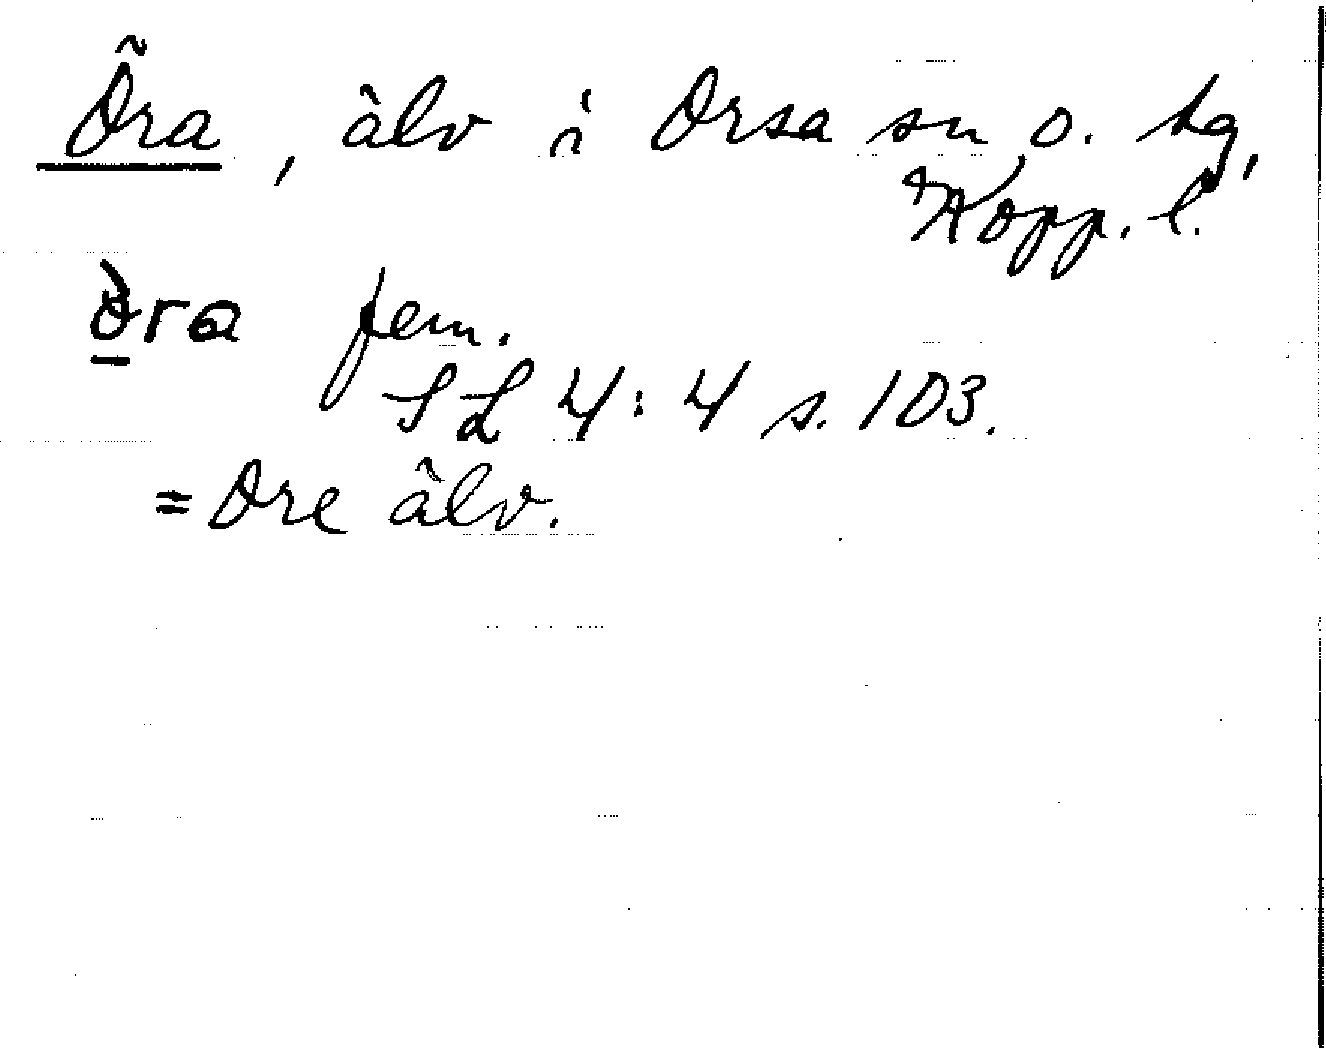 Öra, älv i Orsa sn o. hg,
Kopp. l.
òra fem.
SL 4:4 s. 103.
= Ore älv.